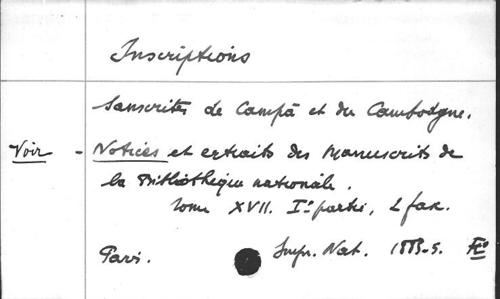 Inscriptions
Sanscrites de Campā et du Cambodgne.
Voir - Notices et extraits des Manuscrits de
la Bibliothèque nationale.
tome XVII. Iᵉ partie, 2 fax.
Paris. Impr. Nat. 1885-5. Fº